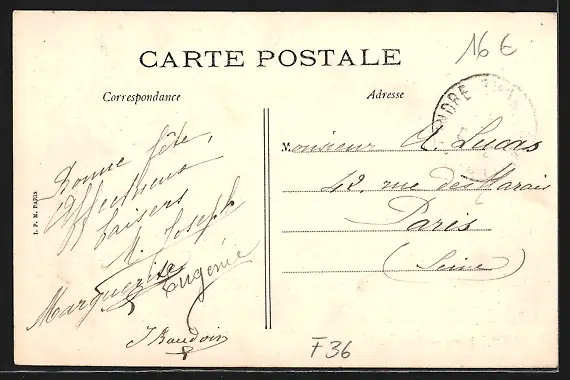 16 €
CARTE POSTALE
Correspondance
Adresse
Bonne fête,
Affectueux
baisers
M. Joseph
Marguerite Eugénie
J Baudoin
I. P. M. PARIS
Monsieur A. Lucas
42, rue des Marais
Paris
(Seine)
F36